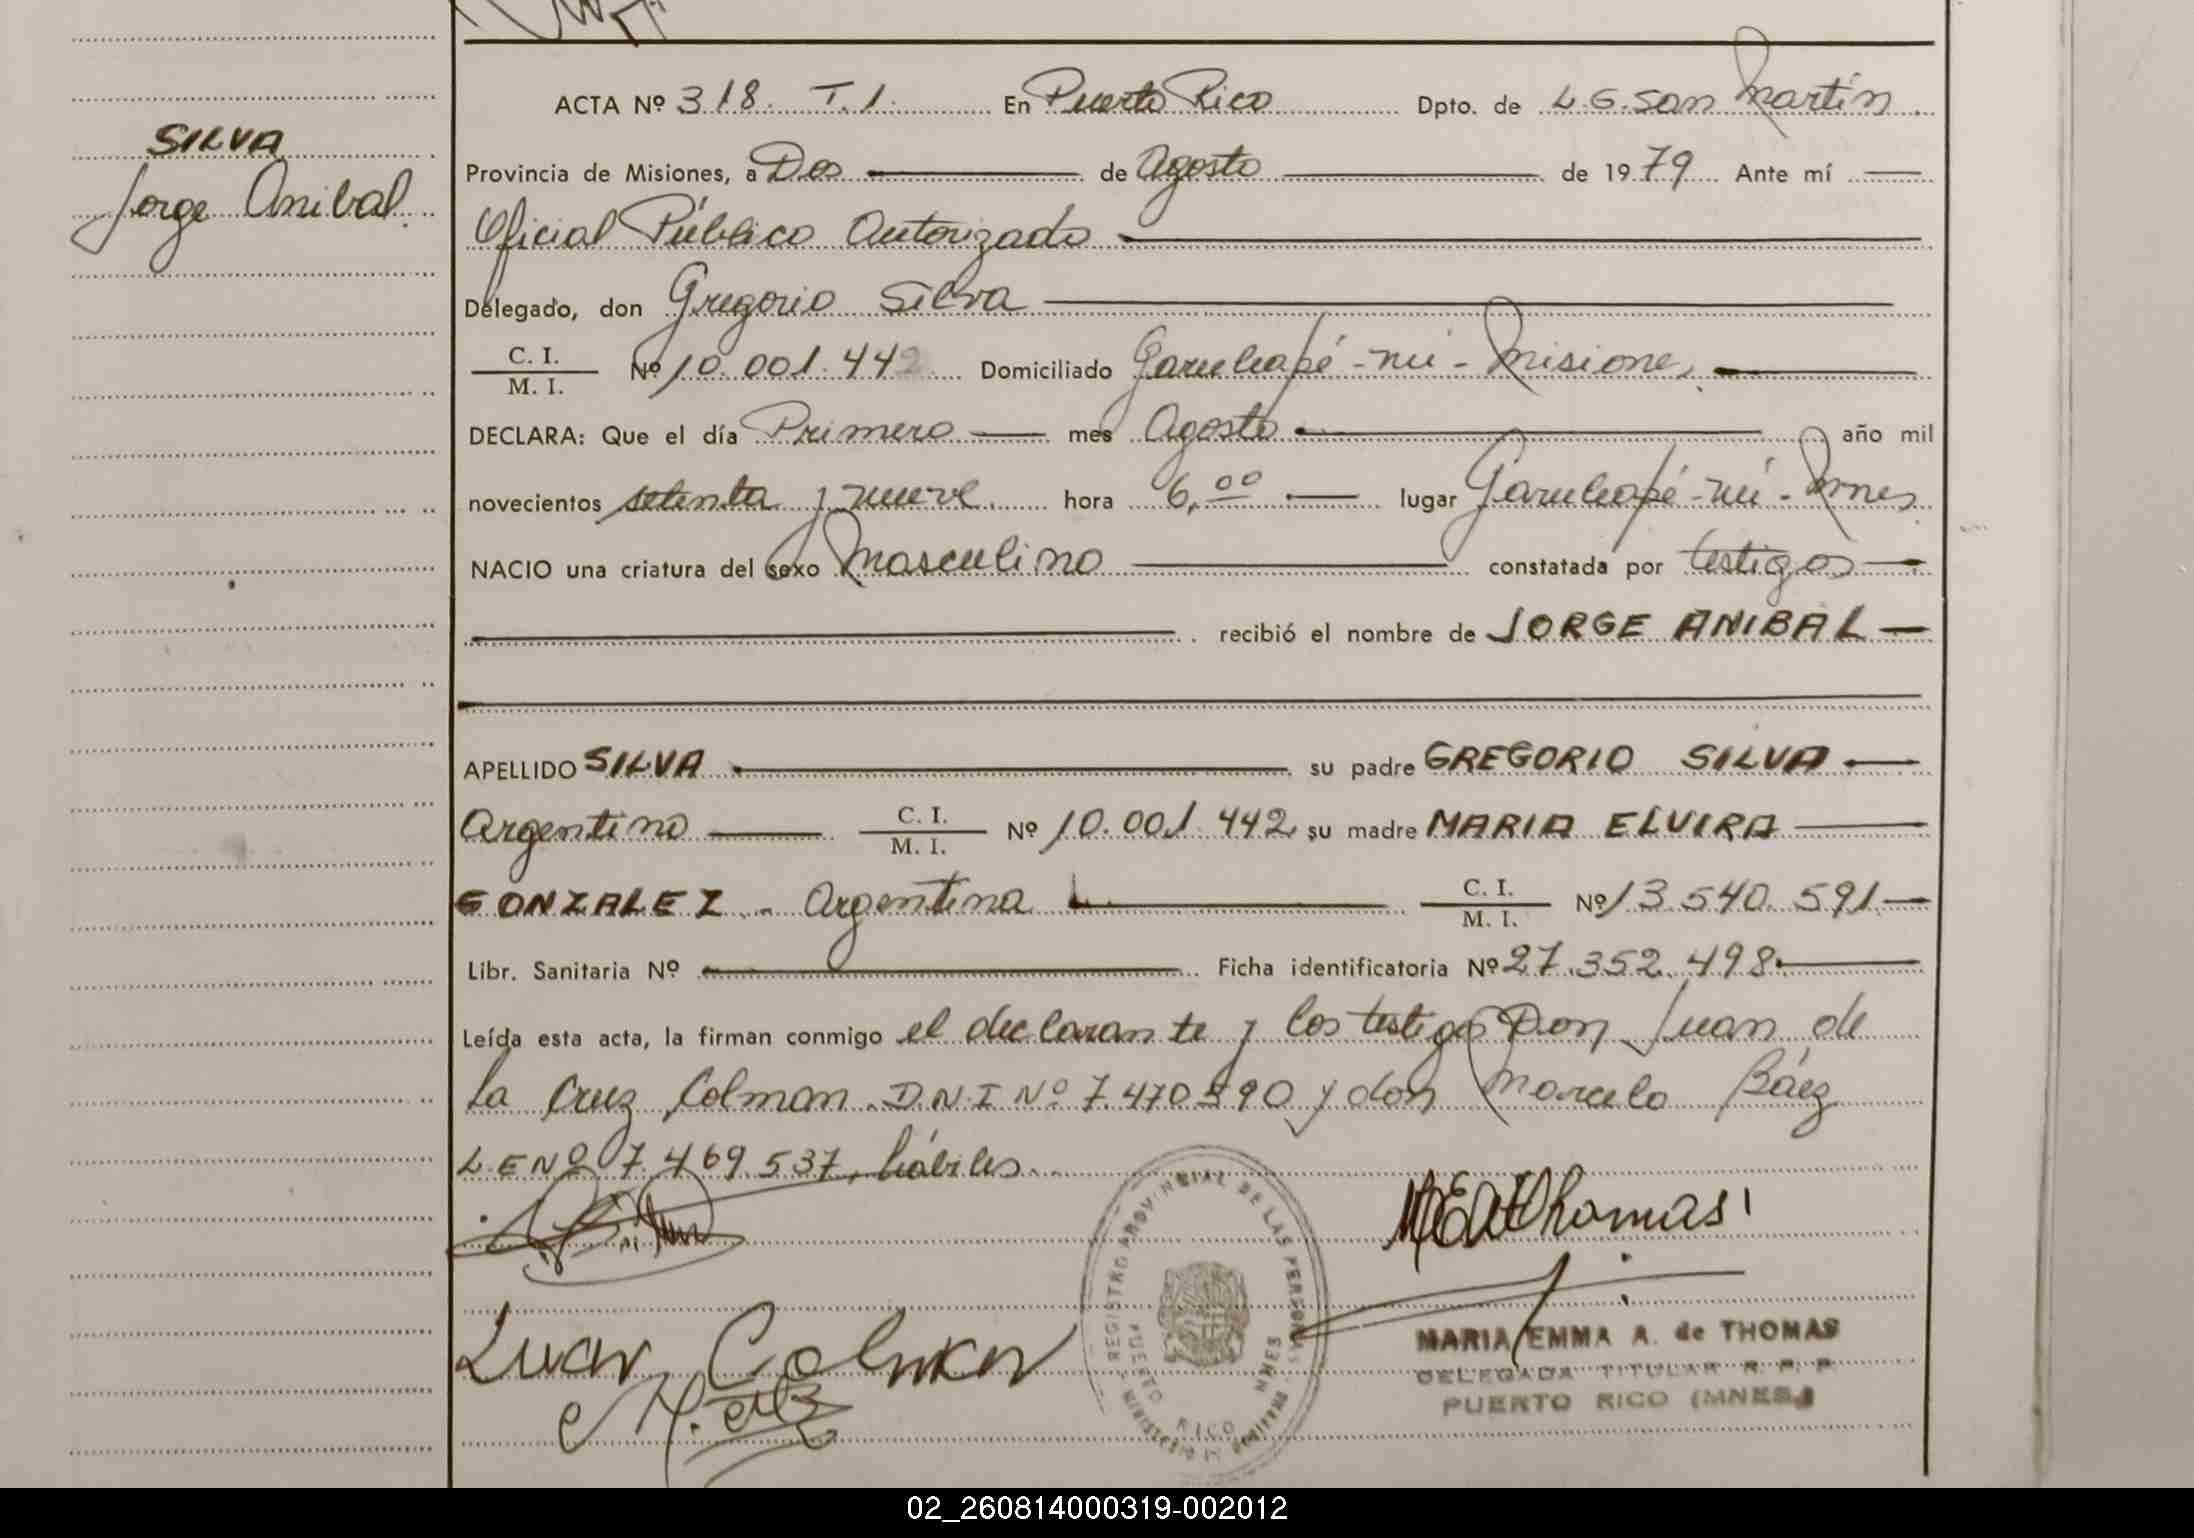 SILVA
Jorge Anibal.
ACTA Nº 318. T.1. En Puerto Rico Dpto. de L.G. San Martín
Provincia de Misiones, a Dos de Agosto de 1979 Ante mí
Oficial Público Autorizado
Delegado, don Gregorio Silva
C. I.
M. I. Nº 10.001.442 Domiciliado Garuhapé-mí-Misiones
DECLARA: Que el día Primero mes Agosto año mil
novecientos setenta y nueve hora 6,00 lugar Garuhapé-mí-Mnes
NACIO una criatura del sexo Masculino constatada por testigos
recibió el nombre de JORGE ANIBAL
APELLIDO SILVA su padre GREGORIO SILVA
Argentino C. I.
M. I. Nº 10.001.442 su madre MARIA ELVIRA
GONZALEZ - Argentina C. I.
M. I. Nº 13.540.591
Libr. Sanitaria Nº Ficha identificatoria Nº 27.352.498
Leída esta acta, la firman conmigo el declarante y los testigos Don Juan de
la Cruz Colman D.N.I Nº 7.470590 y don Marcelo Báez
L.E Nº 7.469.537, hábiles.
MEAdeThomas
Juan Colman
REGISTRO PROVINCIAL DE LAS PERSONAS
PUERTO RICO
MNES
MARIA EMMA A. de THOMAS
DELEGADA TITULAR R. P. P.
PUERTO RICO (MNES.)
02_260814000319-002012